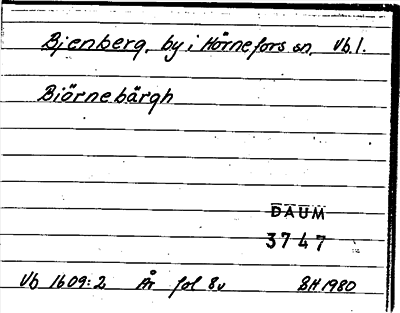 Bjenberg, by i Hörnefors sn, Vb l.
Biörnebärgh
DAUM
3747
Vb 1609:2 År fol 8v BH 1980